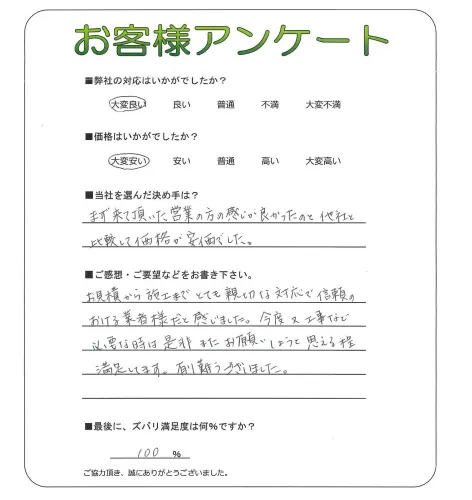 お客様アンケート
■弊社の対応はいかがでしたか？
大変良い 良い 普通 不満 大変不満
■価格はいかがでしたか？
大変安い 安い 普通 高い 大変高い
■当社を選んだ決め手は？
まず来て頂いた営業の方の感じが良かったのと他社と
比較して価格が安価でした。
■ご感想・ご要望などをお書き下さい。
お見積から施工までとても親切な対応で信頼の
おける業者様だと感じました。今度又工事などで
必要な時は是非またお願いしようと思える程
満足してます。有難うございました。
■最後に、ズバリ満足度は何％ですか？
100 ％
ご協力頂き、誠にありがとうございました。